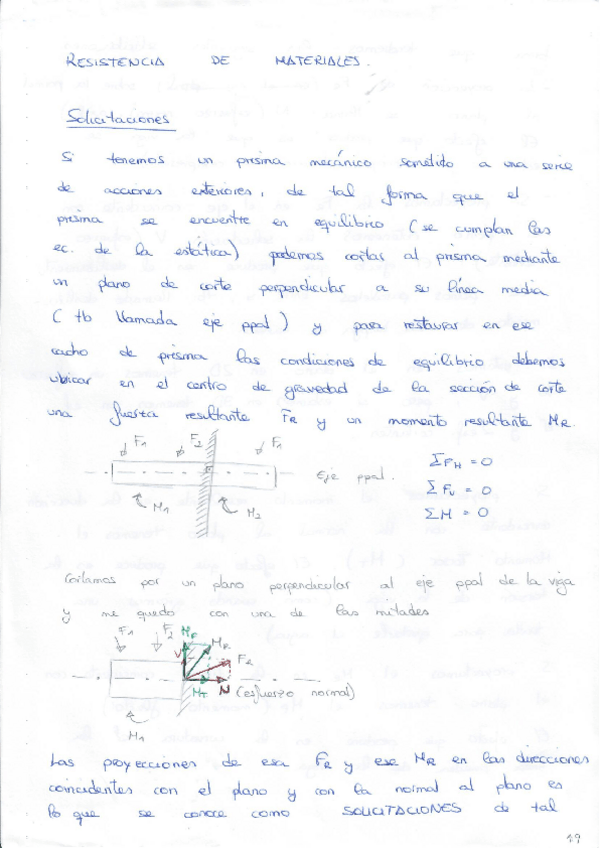 RESISTENCIA DE MATERIALES.
Solicitaciones
Si tenemos un prisma mecánico sometido a una serie
de acciones exteriores, de tal forma que el
prisma se encuentre en equilibrio (se cumplan las
ec. de la estática) podemos cortar al prisma mediante
un plano de corte perpendicular a su línea media
(tb llamada eje ppal) y para restaurar en ese
cacho de prisma las condiciones de equilibrio debemos
ubicar en el centro de gravedad de la sección de corte
una fuerza resultante FR y un momento resultante MR.
F1 F2 F1
Eje ppal.
M1 M2
ΣFH = 0
ΣFV = 0
ΣM = 0
Cortamos por un plano perpendicular al eje ppal de la viga
y me quedo con una de las mitades
F1 F2 MF MR
V FR
MT N (esfuerzo normal)
M1
Las proyecciones de esa FR y ese MR en las direcciones
coincidentes con el plano y con la normal al plano es
lo que se conoce como SOLICITACIONES de tal
19